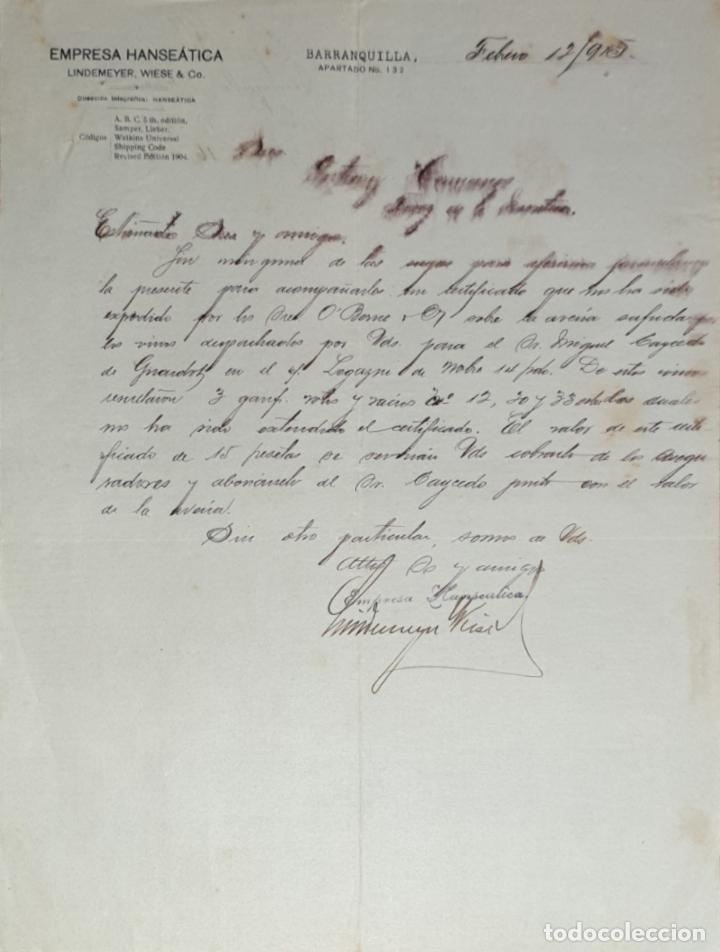 EMPRESA HANSEÁTICA
LINDEMEYER, WIESE & Co.
Dirección telegráfica: HANSEÁTICA
Códigos
A. B. C. 5 th. edition,
Samper, Lieber,
Watkins Universal
Shipping Code
Revised Edition 1904.
BARRANQUILLA,
APARTADO No. 132
Febrero 12/
Sres
de la Frontera.
Estimados Sres y amigos.
Sin ninguna de las suyas para
la presente para acompañarles un certificado que nos ha sido
expedido por los Sres O'Byrne & Cy sobre la avería sufrida
los vinos despachados por Vds. para el Sr. Miguel Caycedo
de Girardot, en el v/ de Nobre pdo. De estos vinos
resultaron 3 garraf. rotos y vacios No 12, 20 y 33 cuales
nos ha sido extendido el certificado. El valor de este certi
ficado de 15 pesetas se servirán Vds cobrarlo de los asegu
radores y abonárselo al Sr. Caycedo junto con el valor
de la avería.
Sin otro particular, somos de Vds.
Attos Ss y amigos
Empresa Hanseatica
Lindemeyer Wiese
todocoleccion